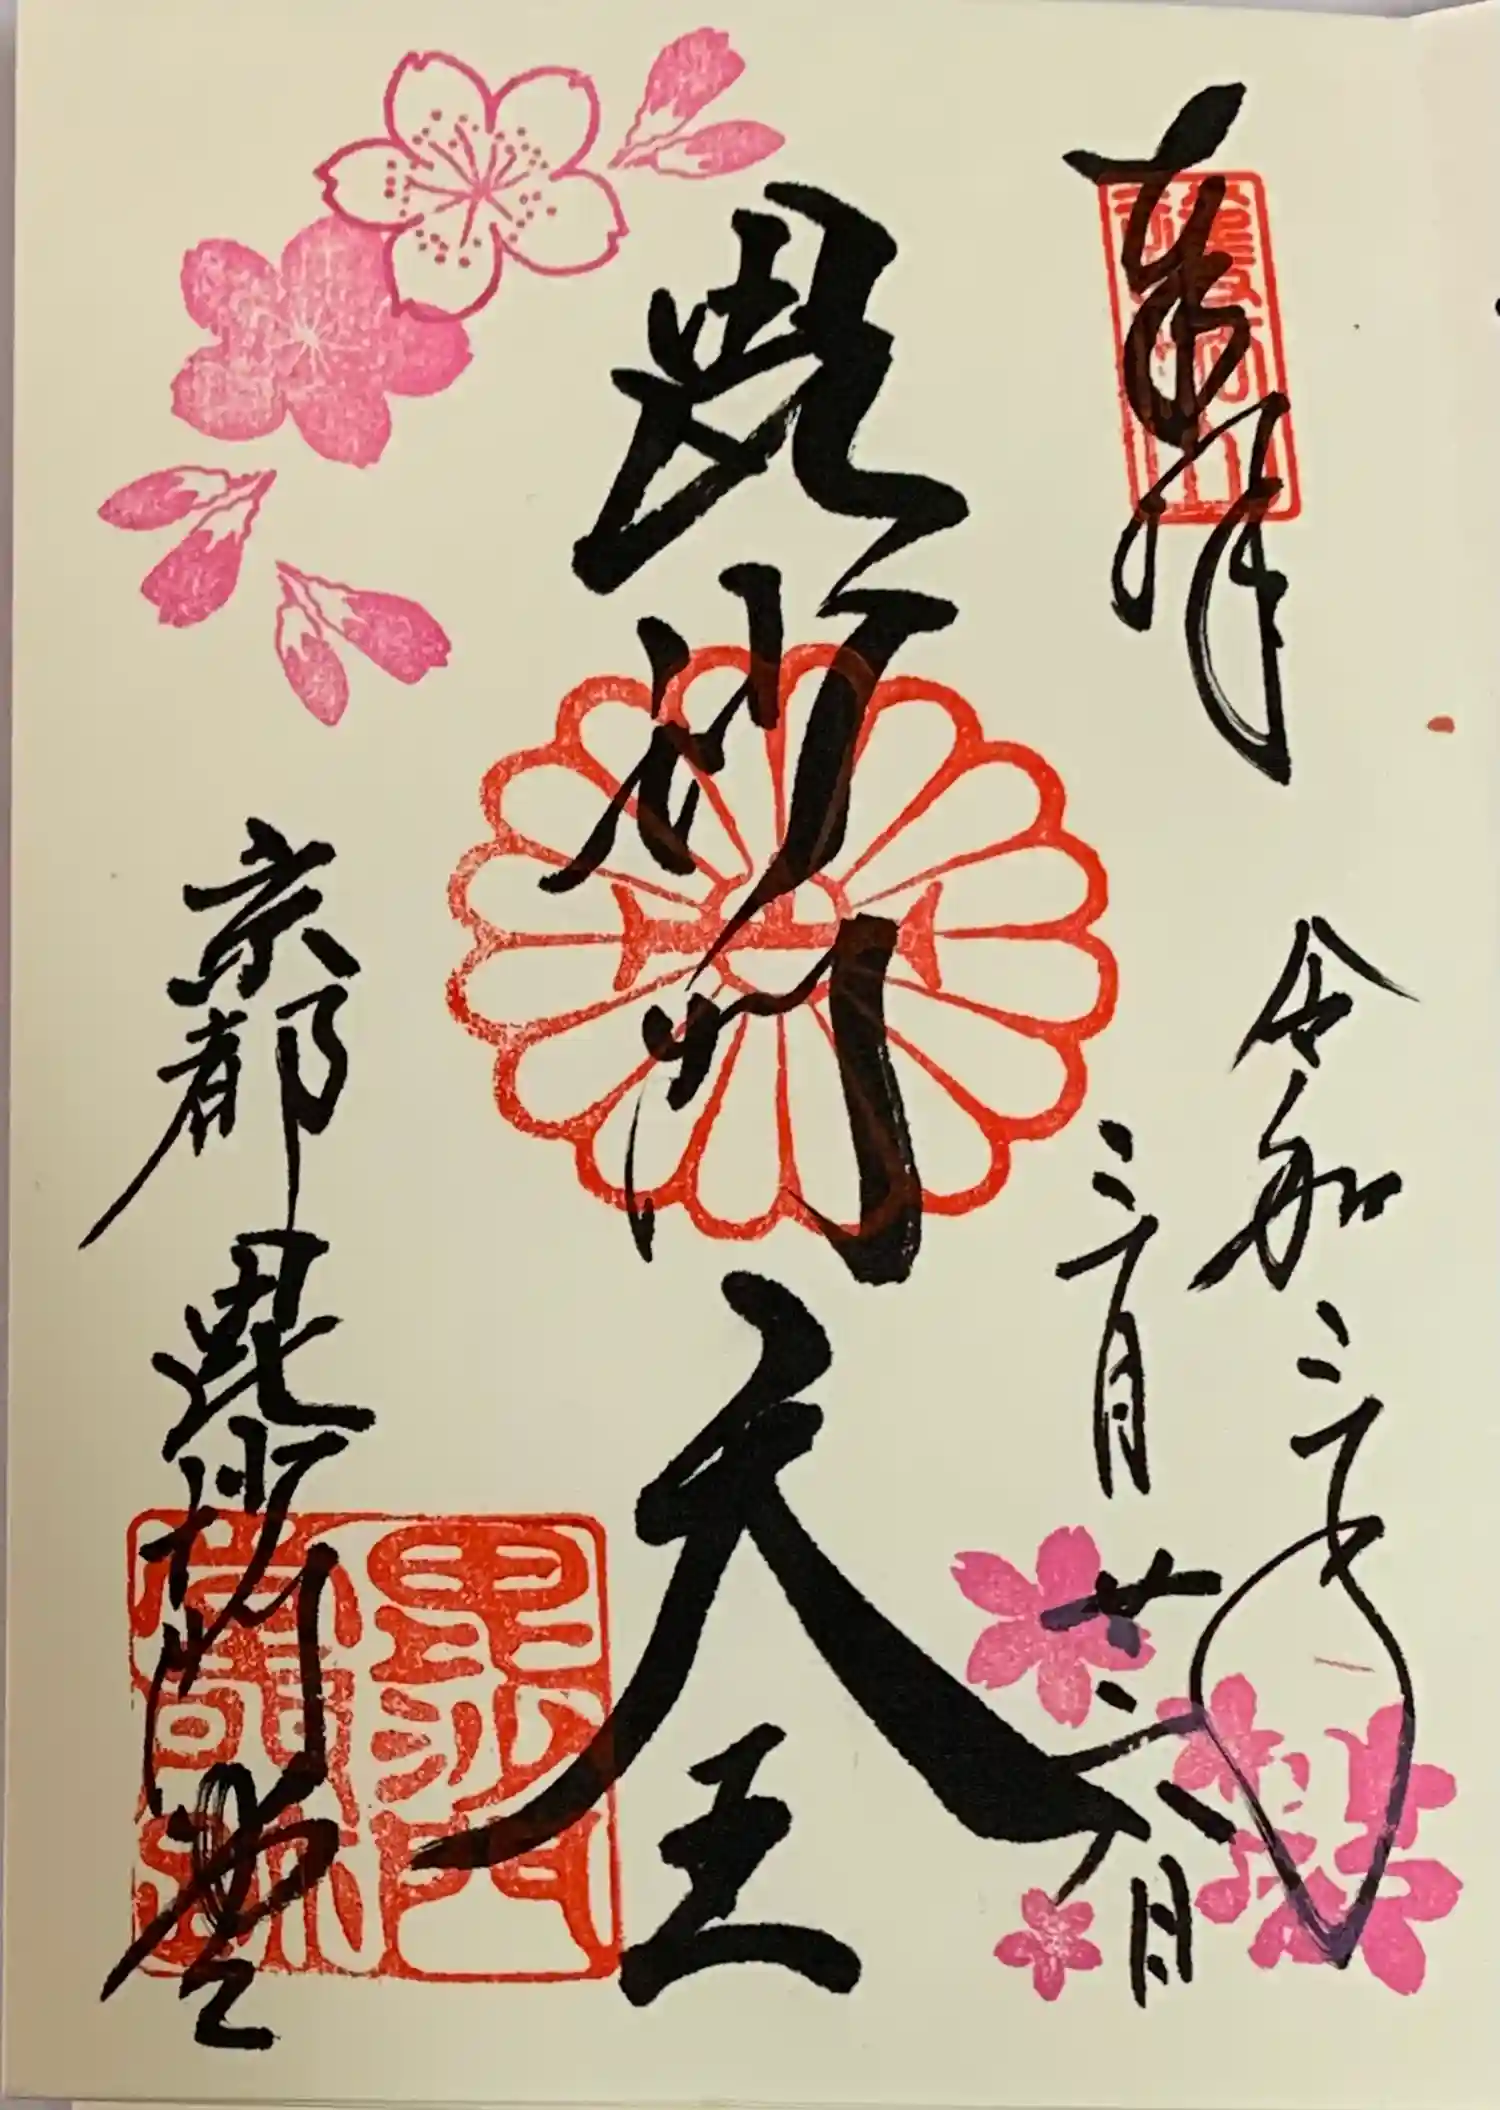 奉拝
令和三年
三月廿六日
毘沙門天王
京都毘沙門堂
毘沙門
堂門跡